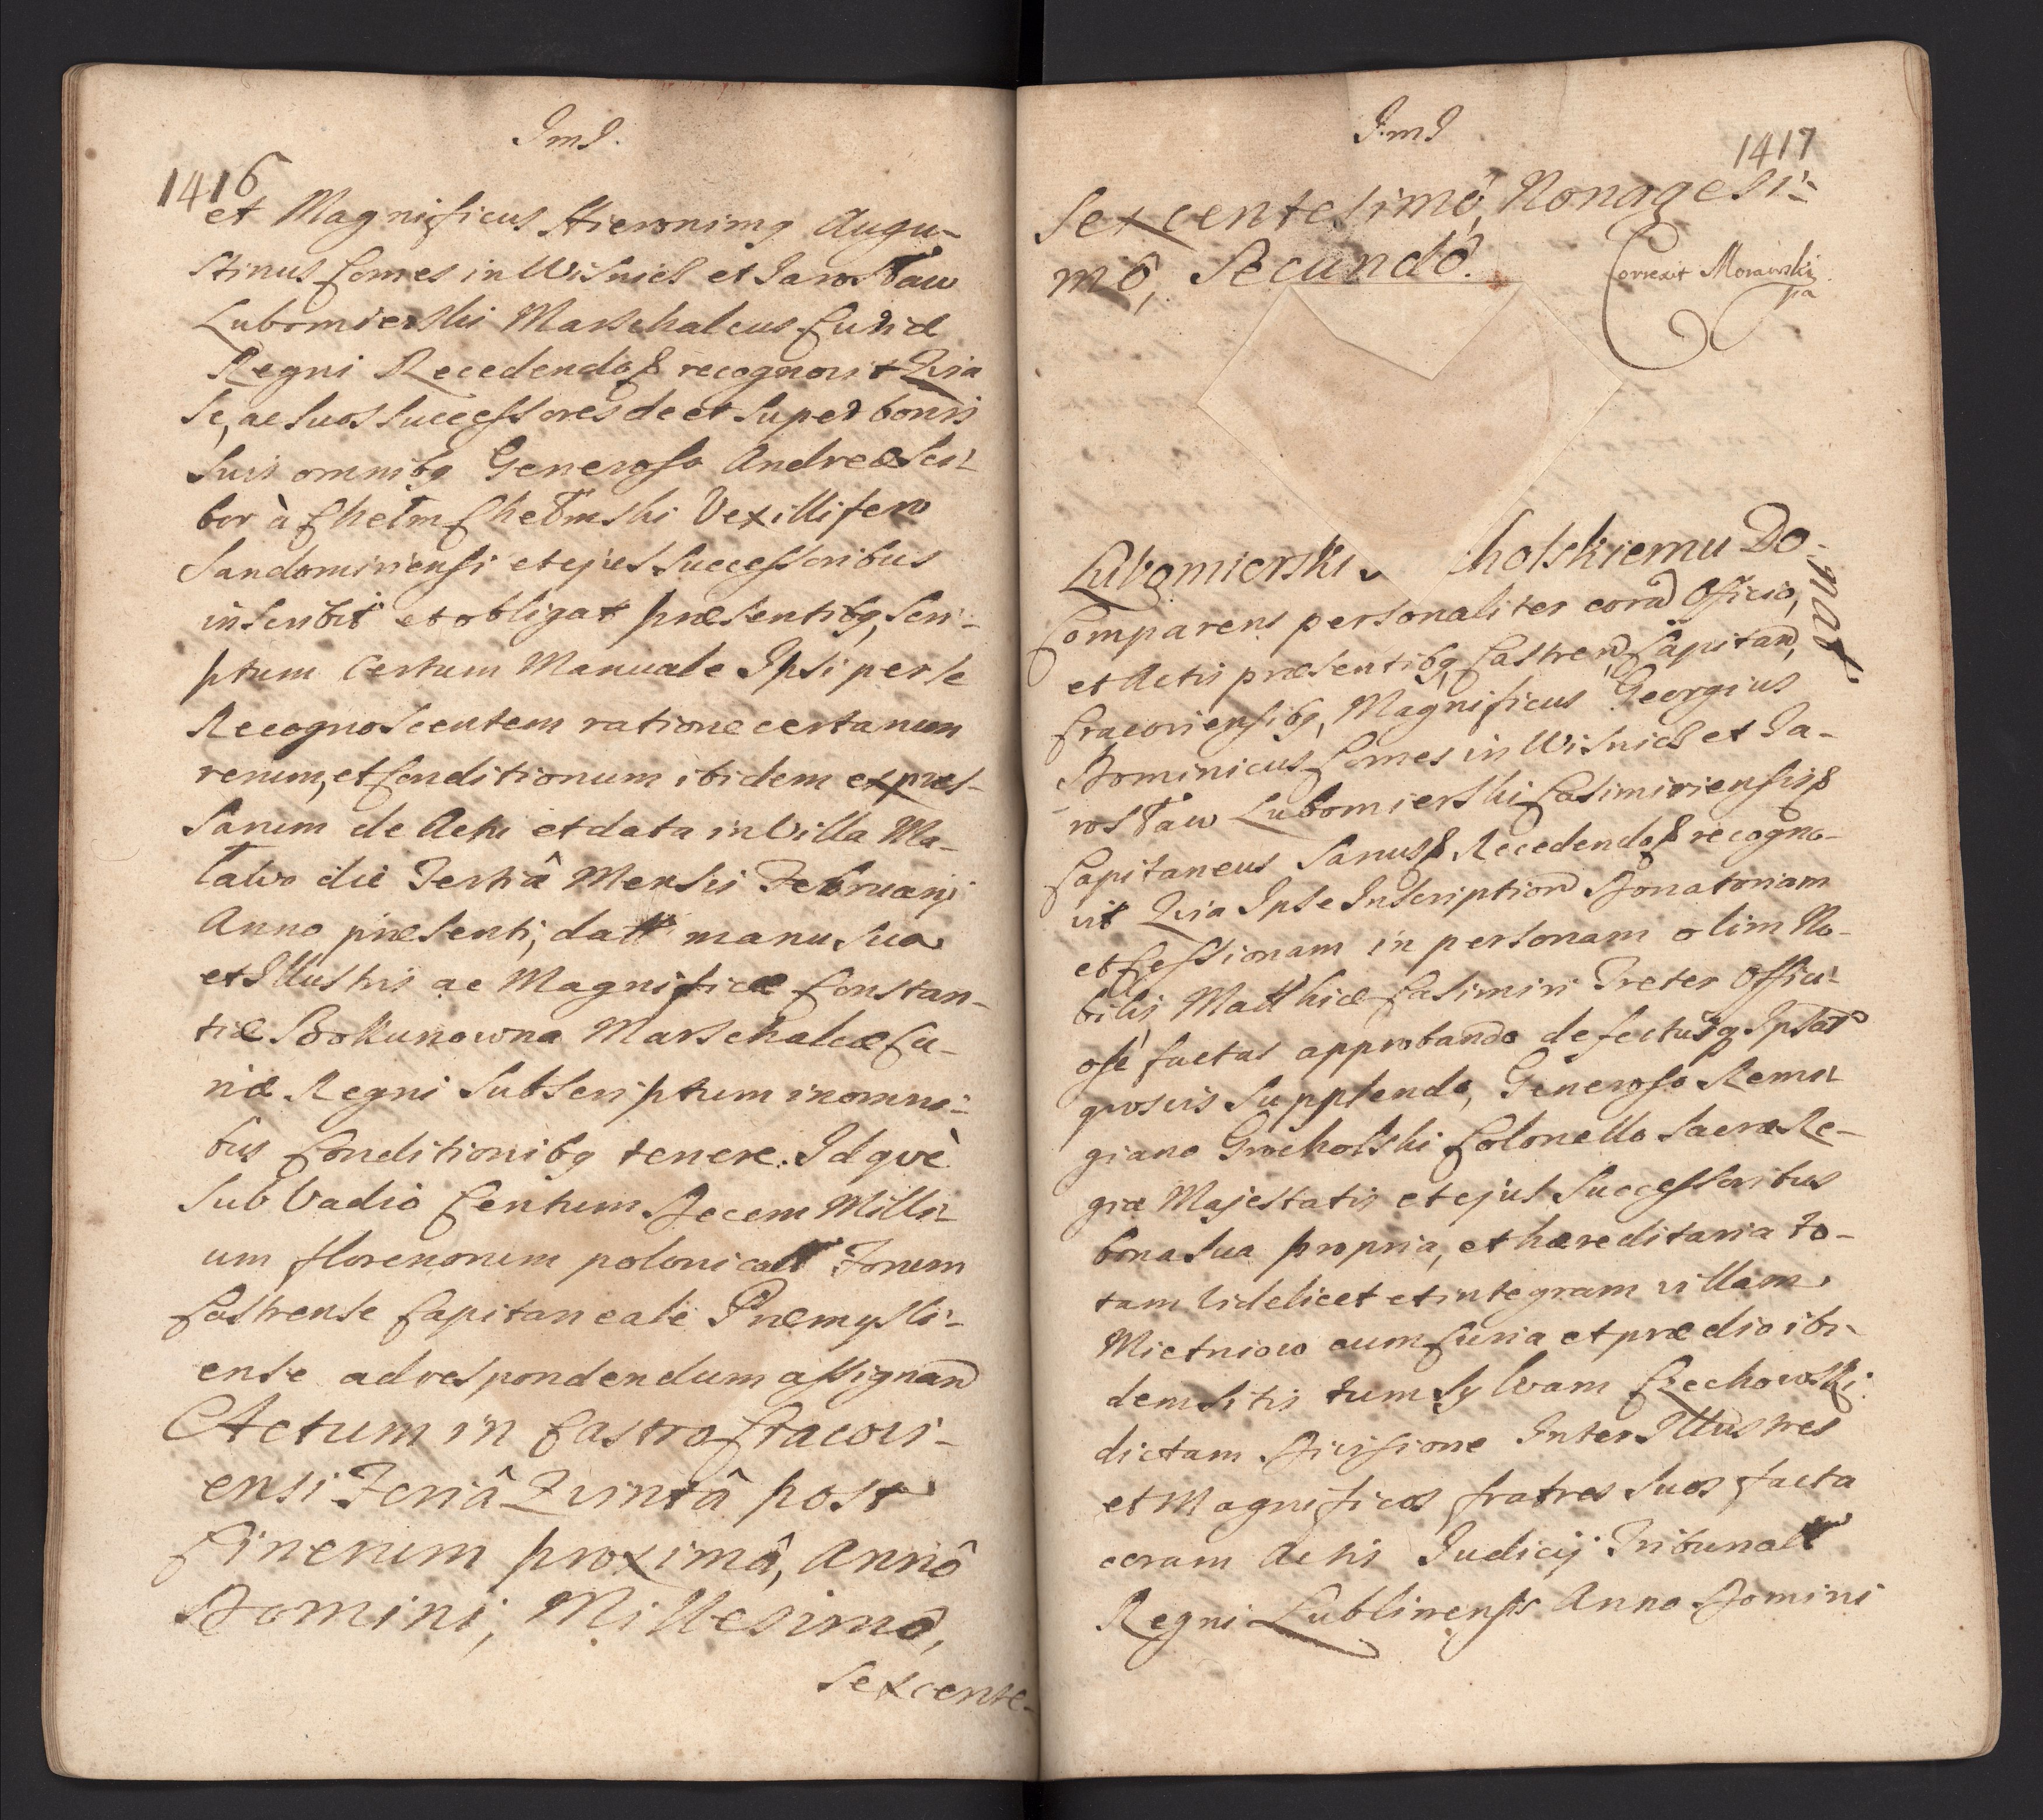 ImJ.
1416
et Magnificus Hieronimq Augu-
stinus Comes in Wisnicz et Jarosław
Lubomierski Marschalcus Curiæ
Regni Recedendo recognovit Qvia
Se, ac suos successores de et super bonis
suis omnibq Generoso Andreæ Sci-
bor à Chełm Chełmski Vexillifero
Sandomiriensi et ejus successoribus
inscribit et obligat præsentibq, Scri-
ptum Certum Manuale Ipsi per se
Recognoscentem ratione certarum
rerum, et Conditionum ibidem expres-
sarum de Actu et data in Villa Ma-
ławo die Tertiâ Mensis Februarij
Anno præsenti, datt manu sua
et Illustris ac Magnificæ Constan-
tiæ Bokunowna Marschalcæ Cu-
riæ Regni Subscriptum in omni-
bus Conditionibq tenere. Idqvè
Sub Vadio Centum Decem Milli-
um florenorum polonicall Forum
Castrense Capitaneale Præmysli-
ense ad respondendum assignand
Actum in Castro Cracovi-
ensi Feriâ Qvintâ post
Cinerum proximâ, Annô
Domini, Millesimô,
Sexcente-
ImJ
1417
Sexcentesimô, Nonagesi-
mô, Secundô.
Correxit Morawski
Lubomierski holskiemu Do-
nat.
Comparens personaliter corad Officio,
et Actis præsentibq, Castren, Capitan,
Cracoviensibq, Magnificus Georgius
Dominicus Comes in Wisnicz et Ja-
rosław Lubomierski Casimiriensis
Capitaneus Sanus Recedendo recogno-
vit Qvia Ipse Inscriptiond Donatoriam
et Cessionam in personam olim No-
bilis Matthiæ Casimiri Treter Offici-
osè factas approbando defectusq Ipsar
qvosvis Supplendo, Generoso Remi-
giano Grocholski Colonello Sacræ Re-
giæ Majestatis et ejus Successoribus
bona sua propria, et hæreditaria to-
tam Videlicet et integram villam
Mietniow cum Curia et prædio ibi-
dem sitis tum Sylvam Czechowski
dictam Divisione Inter Illustres
et Magnificos fratres suos facta
coram Actis Judicij Tribunall
Regni Lublinensis Anno Domini